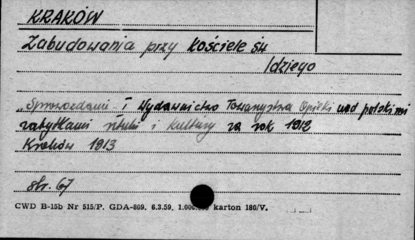 KRAKÓW
Zabudowania przy kościele św
Idziego
„Sprawozdanie i Wydawnictwo Towarzystwa Opieki nad polskimi
zabytkami sztuki i kultury za rok 1912
Kraków 1913
str. 67
CWD B-15b Nr 515/P. GDA-869. 6.3.59, karton 180/V.